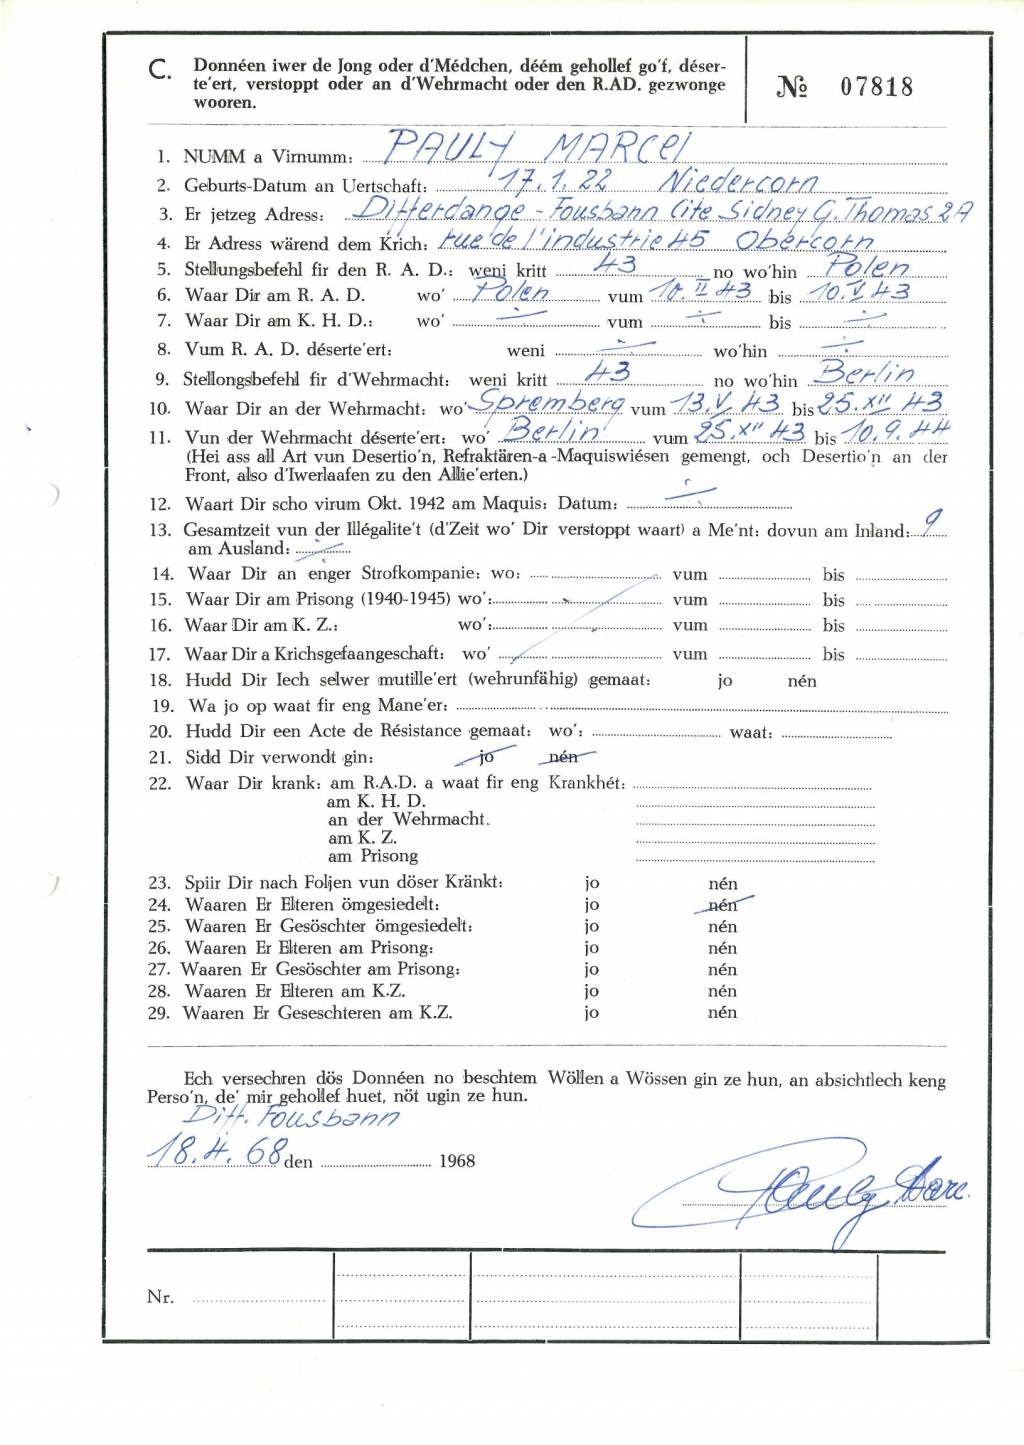 C. Donnéen iwer de Jong oder d'Médchen, déém gehollef go'f, déser-
te'ert, verstoppt oder an d'Wehrmacht oder den R.AD. gezwonge
wooren.
№ 07818
1. NUMM a Virnumm: PAULY MARCEl
2. Geburts-Datum an Uertschaft: 17.1.22 Niedercorn
3. Er jetzeg Adress: Differdange - Fousbann Cite Sidney G. Thomas 2A
4. Er Adress wärend dem Krich: rue de l'industrie 45 Obercorn
5. Stellungsbefehl fir den R. A. D.: weni kritt 43 no wo'hin Polen
6. Waar Dir am R. A. D. wo' Polen vum 10. II 43 bis 10. V 43
7. Waar Dir am K. H. D.: wo' ÷ vum ÷ bis ÷
8. Vum R. A. D. déserte'ert: weni ÷ wo'hin ÷
9. Stellongsbefehl fir d'Wehrmacht: weni kritt 43 no wo'hin Berlin
10. Waar Dir an der Wehrmacht: wo' Spremberg vum 13. V 43 bis 25. XII 43
11. Vun der Wehrmacht déserte'ert: wo' Berlin vum 25. XII 43 bis 10. 9. 44
(Hei ass all Art vun Desertio'n, Refraktären-a-Maquiswiésen gemengt, och Desertio'n an der
Front, also d'Iwerlaafen zu den Allie'erten.)
12. Waart Dir scho virum Okt. 1942 am Maquis: Datum: ÷
13. Gesamtzeit vun der Illégalite't (d'Zeit wo' Dir verstoppt waart) a Me'nt: dovun am Inland: 9
am Ausland: ÷
14. Waar Dir an enger Strofkompanie: wo: vum bis
15. Waar Dir am Prisong (1940-1945) wo': vum bis
16. Waar Dir am K. Z.: wo': vum bis
17. Waar Dir a Krichsgefaangeschaft: wo' vum bis
18. Hudd Dir Iech selwer mutille'ert (wehrunfähig) gemaat: jo nén
19. Wa jo op waat fir eng Mane'er:
20. Hudd Dir een Acte de Résistance gemaat: wo': waat:
21. Sidd Dir verwondt gin: jo nén
22. Waar Dir krank: am R.A.D. a waat fir eng Krankhét:
am K. H. D.
an der Wehrmacht.
am K. Z.
am Prisong
23. Spiir Dir nach Foljen vun döser Kränkt: jo nén
24. Waaren Er Elteren ömgesiedelt: jo nén
25. Waaren Er Gesöschter ömgesiedelt: jo nén
26. Waaren Er Elteren am Prisong: jo nén
27. Waaren Er Gesöschter am Prisong: jo nén
28. Waaren Er Elteren am K.Z. jo nén
29. Waaren Er Geseschteren am K.Z. jo nén
Ech versechren dös Donnéen no beschtem Wöllen a Wössen gin ze hun, an absichtlech keng
Perso'n, de' mir gehollef huet, nöt ugin ze hun.
Diff. Fousbann
18. 4. 68 den 1968
Pauly Marc.
Nr.